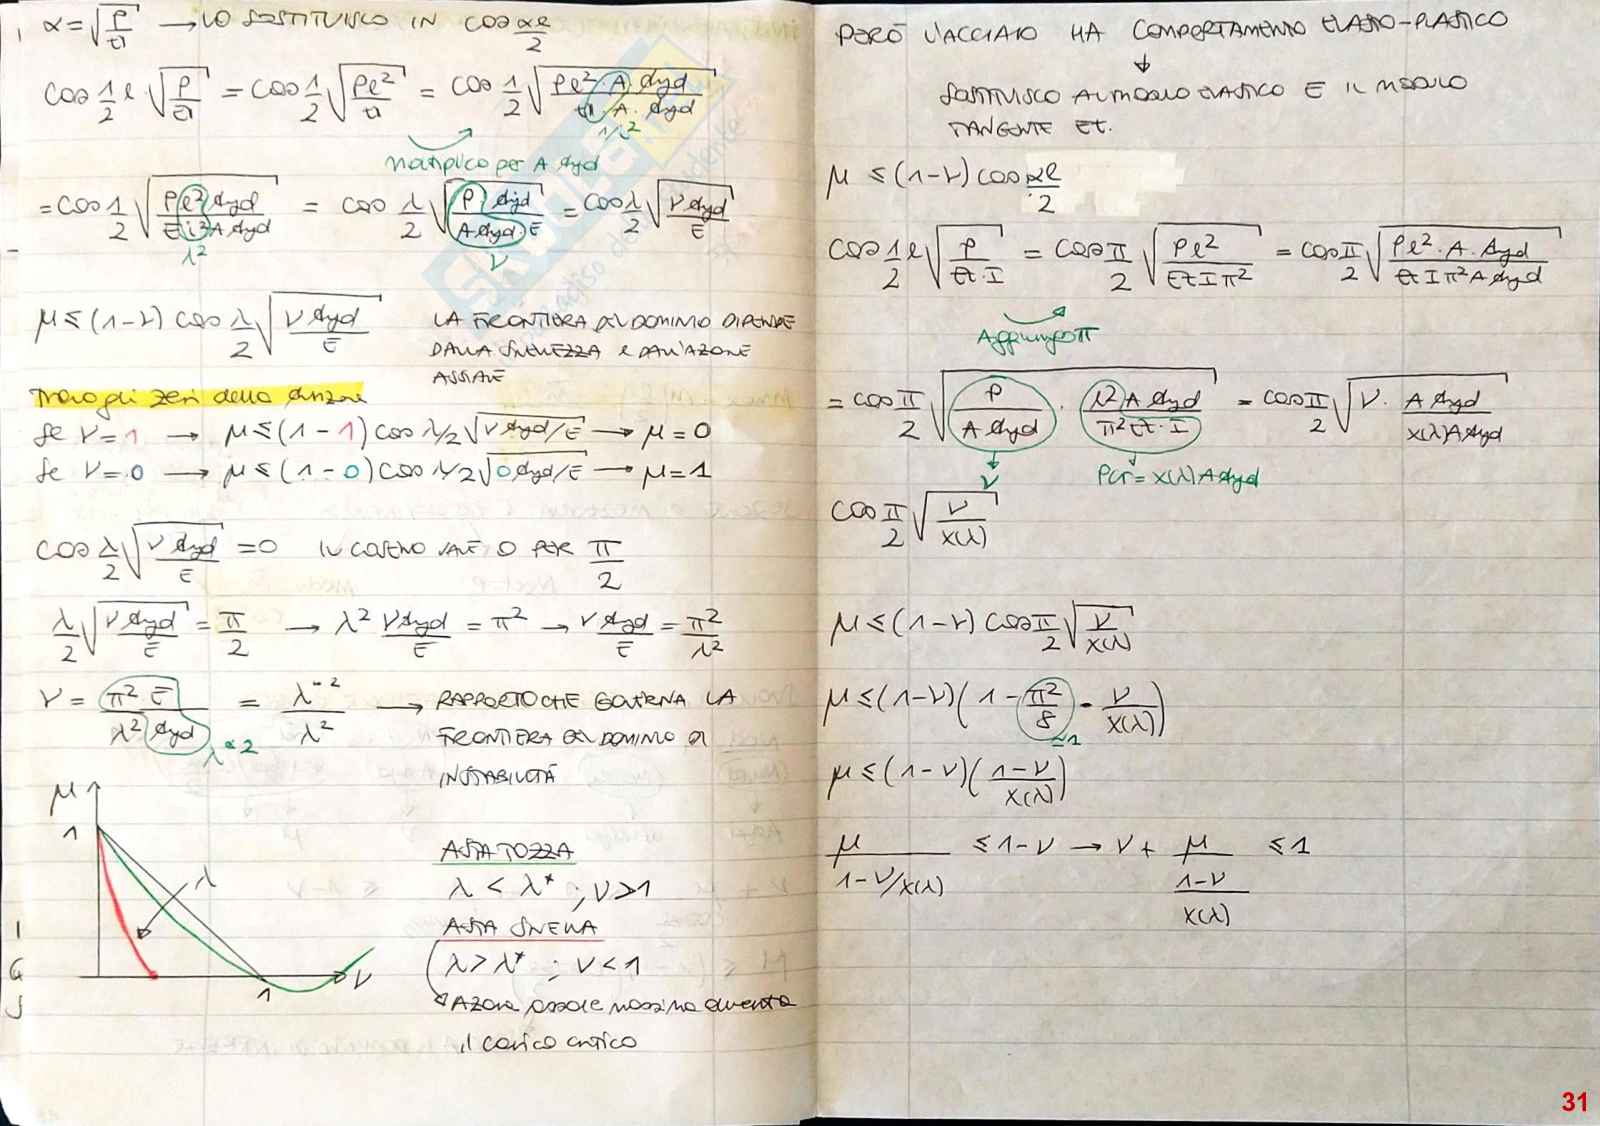 α = √(P/EI) → LO SOSTITUISCO IN cos αl/2
cos 1/2 l · √(P/EI) = cos 1/2 √(Pl²/EI) = cos 1/2 √(Pl² · A · fyd / EI · A · fyd)
1/i²
moltiplico per A fyd
= cos 1/2 √(P l² fyd / E i² A fyd) = cos λ/2 √(P fyd / A fyd · E) = cos λ/2 √(ν fyd / E)
λ²
ν
μ ≤ (1-ν) cos λ/2 √(ν fyd / E)
LA FRONTIERA DEL DOMINIO DIPENDE
DALLA SNELLEZZA e DALL'AZIONE
ASSIALE
Trovo gli zeri della funzione
Se ν = 1 → μ ≤ (1 - 1) cos λ/2 √(ν fyd/E) → μ = 0
Se ν = 0 → μ ≤ (1 - 0) cos λ/2 √(0 fyd/E) → μ = 1
cos λ/2 √(ν fyd / E) = 0 IL COSENO VALE 0 PER π/2
λ/2 √(ν fyd / E) = π/2 → λ² ν fyd / E = π² → ν fyd / E = π²/λ²
ν = π² E / λ² fyd = λ*² / λ² → RAPPORTO CHE GOVERNA LA
λ*²
FRONTIERA DEL DOMINIO DI
INSTABILITÀ
μ
1
λ
1
ν
ASTA TOZZA
λ < λ* ; ν > 1
ASTA SNELLA
λ > λ* ; ν < 1
Azione assiale massima diventa
il carico critico
PERÒ L'ACCIAIO HA COMPORTAMENTO ELASTO-PLASTICO
↓
SOSTITUISCO AL MODULO ELASTICO E IL MODULO
TANGENTE Et.
μ ≤ (1-ν) cos αl/2
cos 1/2 l √(P / Et · I) = cos π/2 √(Pl² / Et I π²) = cos π/2 √(Pl² · A · fyd / Et I π² A fyd)
Aggiungo π
= cos π/2 √(P / A fyd · λ² A fyd / π² Et · I) = cos π/2 √(ν · A fyd / χ(λ) A fyd)
ν
Pcr = χ(λ) A fyd
cos π/2 √(ν / χ(λ))
μ ≤ (1-ν) cos π/2 √(ν / χ(λ))
μ ≤ (1-ν) (1 - π²/8 · ν/χ(λ))
≃1
μ ≤ (1-ν) (1-ν / χ(λ))
μ / 1-ν/χ(λ) ≤ 1-ν → ν + μ / (1-ν / χ(λ)) ≤ 1
31